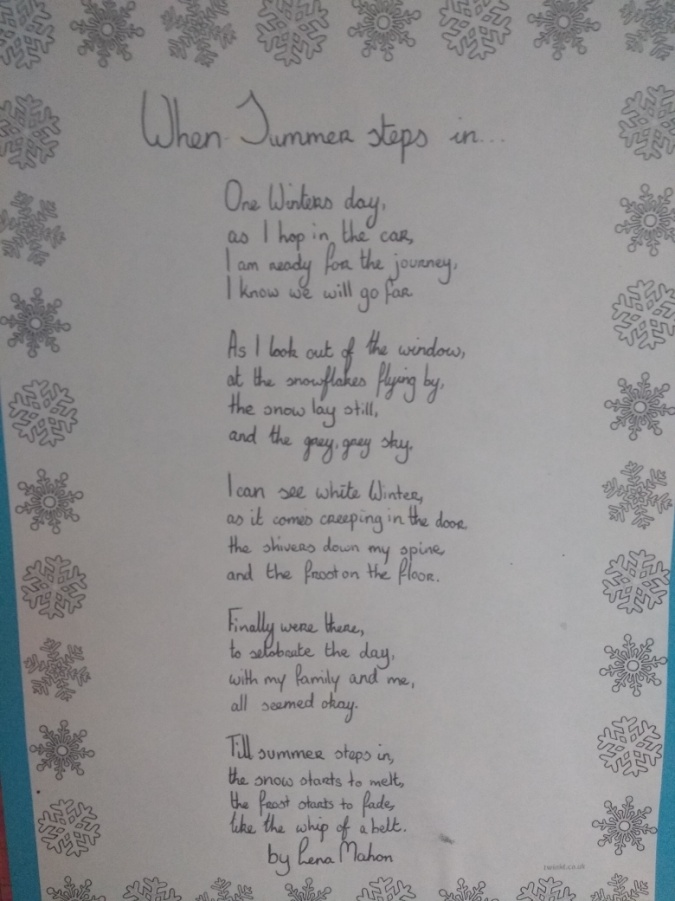 When Summer steps in...
One Winters day,
as I hop in the car,
I am ready for the journey,
I know we will go far
As I look out of the window,
at the snowflakes flying by,
the snow lay still,
and the grey, grey sky.
I can see white Winter,
as it comes creeping in the door
the shivers down my spine,
and the frost on the floor.
Finally were there,
to selobrate the day,
with my family and me,
all seemed okay.
Till summer steps in,
the snow starts to melt,
the frost starts to fade,
like the whip of a belt.
by Lena Mahon
twinkl.co.uk